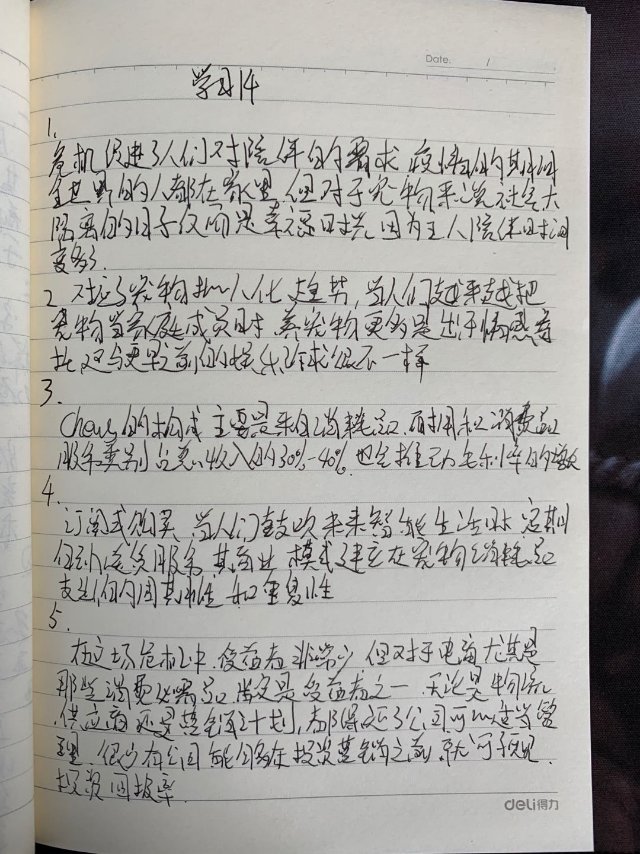 Date. /
学习14
1.
危机促进了人们对陪伴的的需求 疫情的的其间
全世界的人都在家里，但对于宠物来说 社会大
隔离的的日子反而是幸福时光 因为主人陪伴时间
变多了.
2 对于宠物拟人化趋势，当人们越来越把
宠物当家庭成员时 养宠物更多是出于情感寄
托 这与更早前的 需求很不一样
3.
Chewy的构成 主要是来自消耗品 耐用和消费品
服务类别 占总收入的30%-40%
4.
订阅式购买 当人们鼓吹未来智能生活时 定期
服务 其商业模式建立在宠物消耗品
支出的周期性和重复性
5.
在这场危机中 受益者非常少 但对于电商 尤其是
那些消费必需品 当然是受益者之一 无论是物流
供应商还是营销计划，都 公司可以运营管
理 很少有公司能够在投资营销之前 就可预见
投资回报率.
deli得力